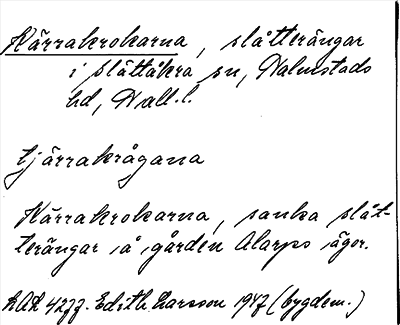 Kärrakrokarna, slåtterängar
i Slättåkra sn, Halmstads
hd, Hall. l.
tjärrakrågana
Kärrakrokarna, sanka slåt-
terängar å gården Alarps ägor.
LAL 4277. Edith Larsson 1947 (bygdem.)